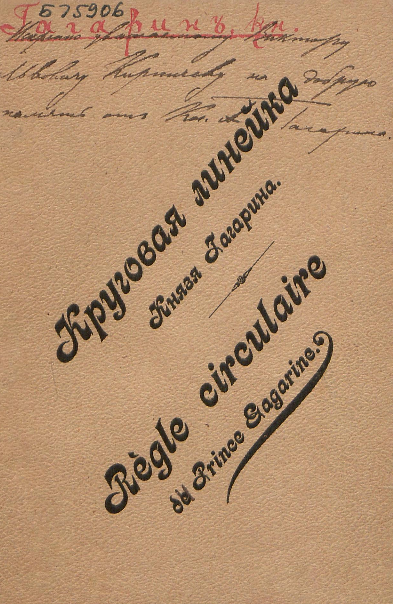 575906
Гагаринъ, кн.
Виктору
Львовичу Кирпичеву на добрую
память отъ Кн. Гагарина.
Круговая линейка
Князя Гагарина.
Règle circulaire
du Prince Gagarine.